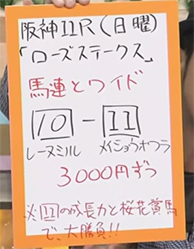 阪神11R(日曜)
「ローズステークス」
馬連とワイド
10 - 11
レーヌミル メイショウオワラ
3000円ずつ
※11の成長力と桜花賞馬
で、大勝負!!